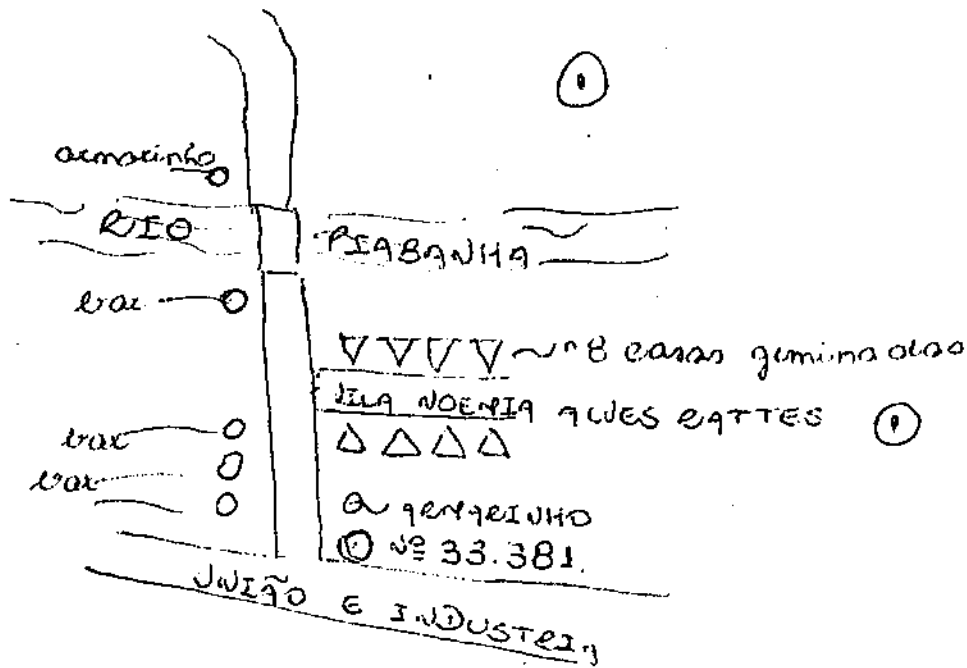 armarinho
RIO PIABANHA
bar
8 casas geminadas
VILA NOEMIA ALVES RATTES
bar
bar
ARMARINHO
Nº 33.381.
UNIÃO E INDUSTRIA